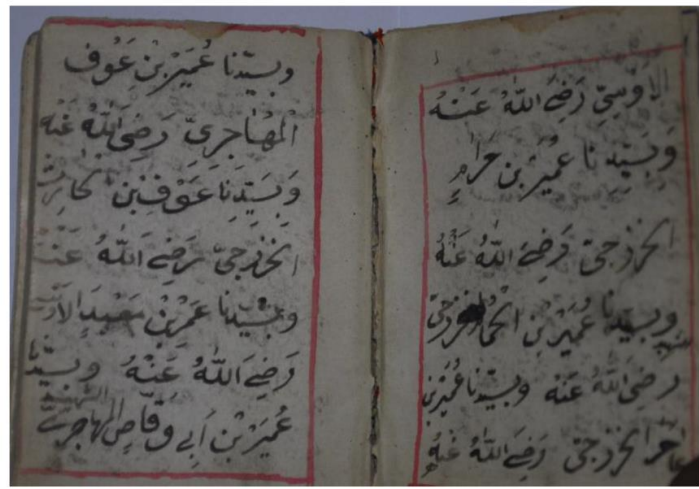 الاوسِيّ رَضِيَ اللّٰهُ عَنْهُ
وَبِسَيِّدِنا عُمَيْرِ بْنِ حَرَامٍ
الخزرجىّ رَضِيَ اللّٰهُ عَنْهُ
وبسيّدنا عُمَيْرِ بْنِ الْحُمَامِ الخزرجىّ
رضى اللّٰهُ عنه وبسيّدنا عُمَيْرِ بْنِ
عامر الخزرجىّ رَضِيَ اللّٰهُ عَنْهُ
وبسيّدنا عُمَيْرِ بْنِ عَوْفِ
الْمُهَاجِرِىّ رَضِىَ اللّٰهُ عَنْه
وَبِسَيِّدِنا عَوْفِ بْنِ الحارِثِ
الخَزْرَجِىّ رَضِيَ اللّٰهُ عَنْهُ
وبسَيّدنا عَمْرِ بْنِ مَعْبَدِ الاَوْسِ
رَضِيَ اللّٰهُ عَنْهُ وبسيّدنا
الشهيد
عُمَيْرِ بْنِ اَبِي وَقّاصٍ المهاجرىّ